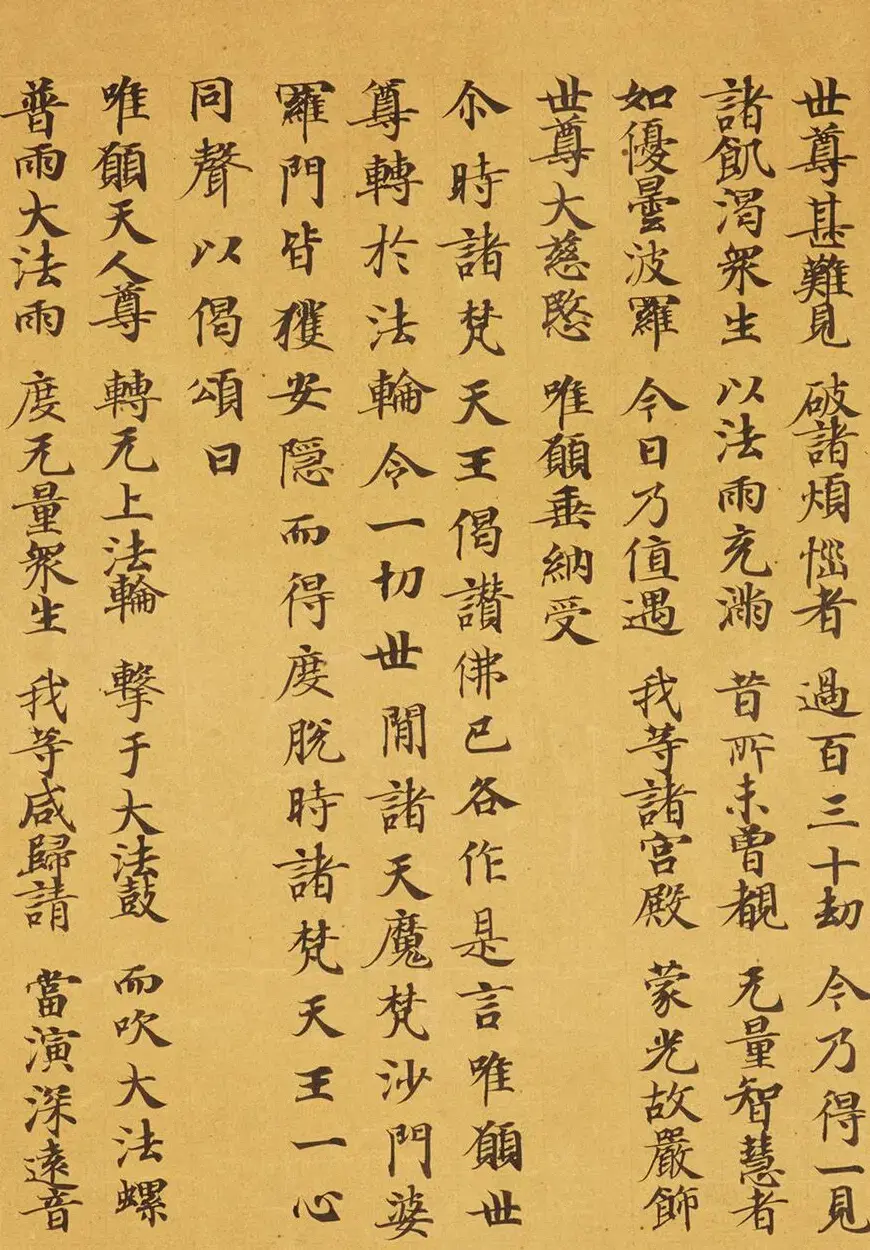 世尊甚難見 破諸煩惱者 過百三十劫 今乃得一見
諸飢渴眾生 以法雨充滿 昔所未曾覩 无量智慧者
如優曇波羅 今日乃值遇 我等諸宮殿 蒙光故嚴飾
世尊大慈愍 唯願垂納受
尒時諸梵天王偈讚佛已各作是言唯願世
尊轉於法輪令一切世閒諸天魔梵沙門婆
羅門皆獲安隱而得度脫時諸梵天王一心
同聲以偈頌曰
唯願天人尊 轉无上法輪 擊于大法鼓 而吹大法螺
普雨大法雨 度无量眾生 我等咸歸請 當演深遠音